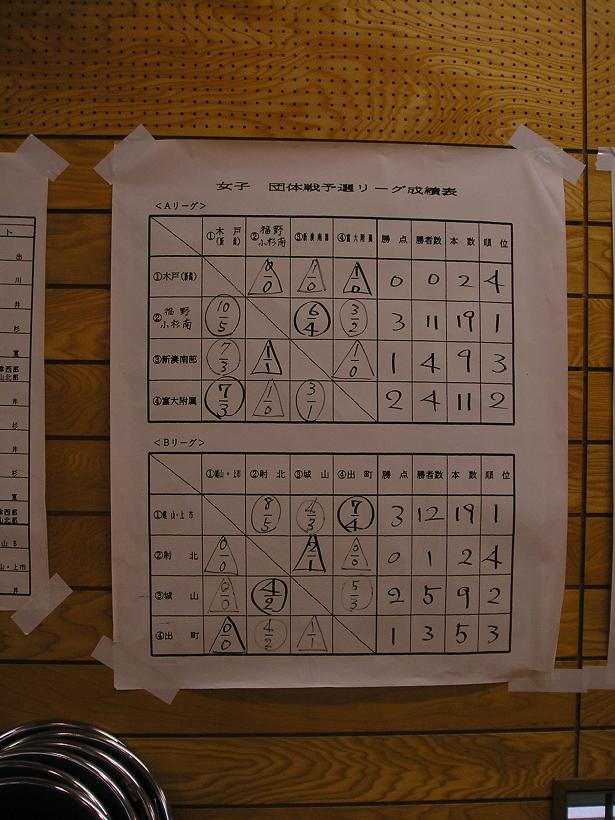 女子 団体戦予選リーグ成績表
<Aリーグ>
①木戸(新湊) ②福野小杉南 ③新湊南部 ④富大附属 勝点 勝者数 本数 順位
①木戸(新湊) 0 0 2 4
②福野小杉南 10/5 6/4 3/2 3 11 19 1
③新湊南部 7/3 1/1 1/0 1 4 9 3
④富大附属 7/3 1/0 3/1 2 4 11 2
<Bリーグ>
・上市 ②射北 ③城山 ④出町 勝点 勝者数 本数 順位
山・上市 8/5 4/3 7/4 3 12 19 1
②射北 0/0 2/1 0/0 0 1 2 4
③城山 0/0 4/2 5/3 2 5 9 2
④出町 0/0 4/2 1/1 1 3 5 3
ト
出
川
井
杉
富
井
杉
井
杉
富
井